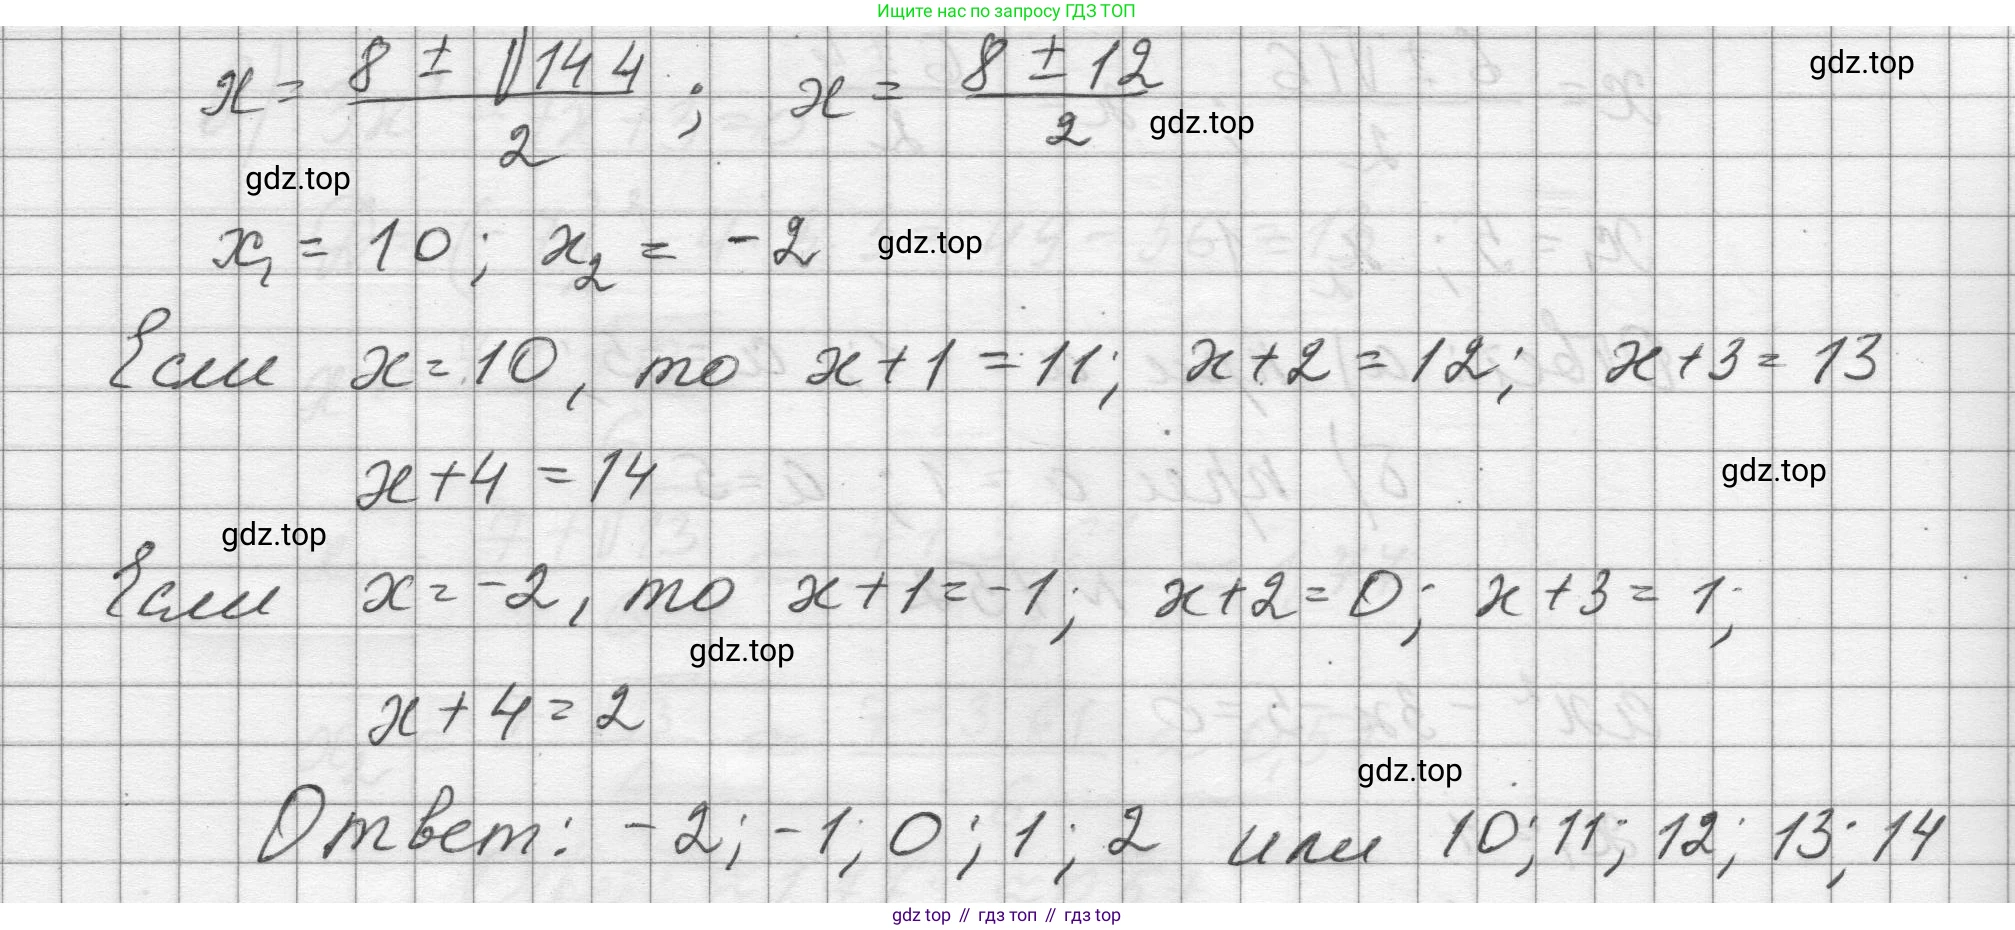 Ищите нас по запросу ГДЗ ТОП
x = (8 ± √144) / 2 ; x = (8 ± 12) / 2
gdz.top
gdz.top
gdz.top
x₁ = 10; x₂ = -2
gdz.top
Если x = 10, то x + 1 = 11; x + 2 = 12; x + 3 = 13
x + 4 = 14
gdz.top
gdz.top
Если x = -2, то x + 1 = -1; x + 2 = 0; x + 3 = 1;
gdz.top
x + 4 = 2
gdz.top
Ответ: -2; -1; 0; 1; 2 или 10; 11; 12; 13; 14
gdz top // гдз топ // гдз top